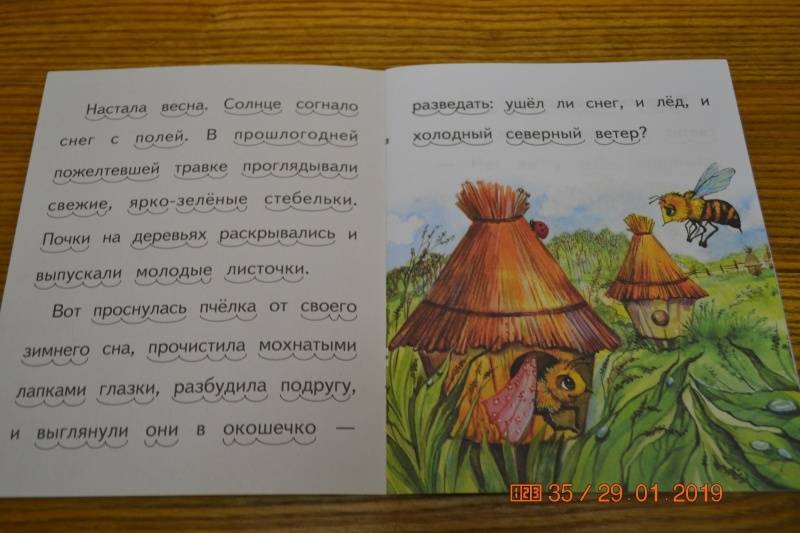 Настала весна. Солнце согнало
снег с полей. В прошлогодней
пожелтевшей травке проглядывали
свежие, ярко-зелёные стебельки.
Почки на деревьях раскрывались и
выпускали молодые листочки.
Вот проснулась пчёлка от своего
зимнего сна, прочистила мохнатыми
лапками глазки, разбудила подругу,
и выглянули они в окошечко —
разведать: ушёл ли снег, и лёд, и
холодный северный ветер?
123 35 / 29.01.2019